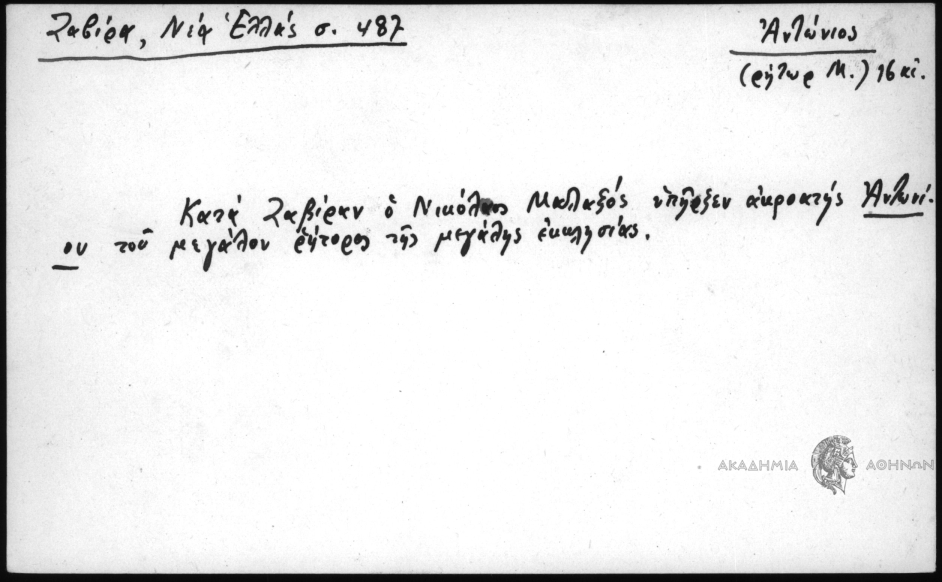 Ζαβίρα, Νέα Ἑλλάς σ. 487
Ἀντώνιος
(ρήτωρ Μ.) 16 αἰ.
Κατά Ζαβίραν ὁ Νικόλαος Μαλαξός ὑπῆρξεν ἀκροατής Ἀντωνί-
ου τοῦ μεγάλου ῥήτορος τῆς μεγάλης ἐκκλησίας.
ΑΚΑΔΗΜΙΑ ΑΘΗΝΩΝ